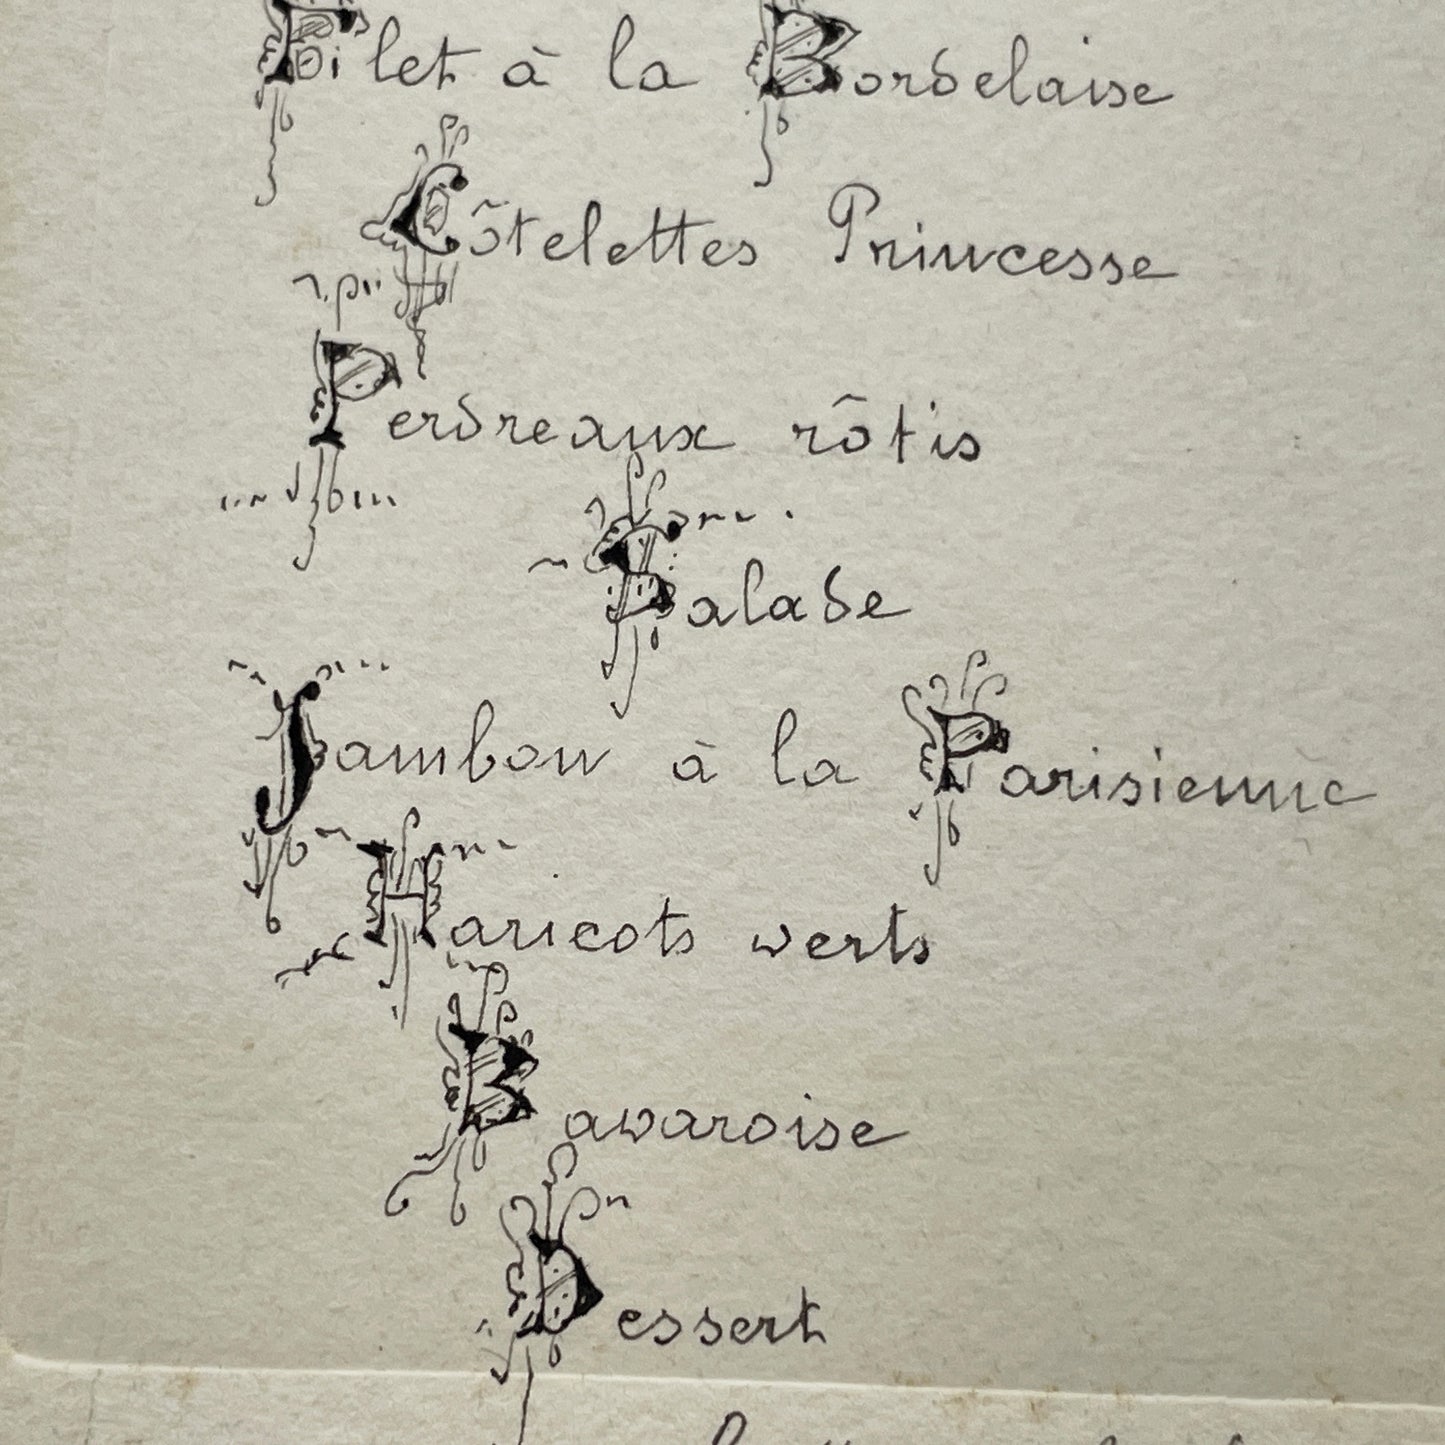 Filet à la Bordelaise
Côtelettes Princesse
Perdreaux rôtis
Salade
Jambon à la Parisienne
Haricots verts
Bavaroise
Dessert